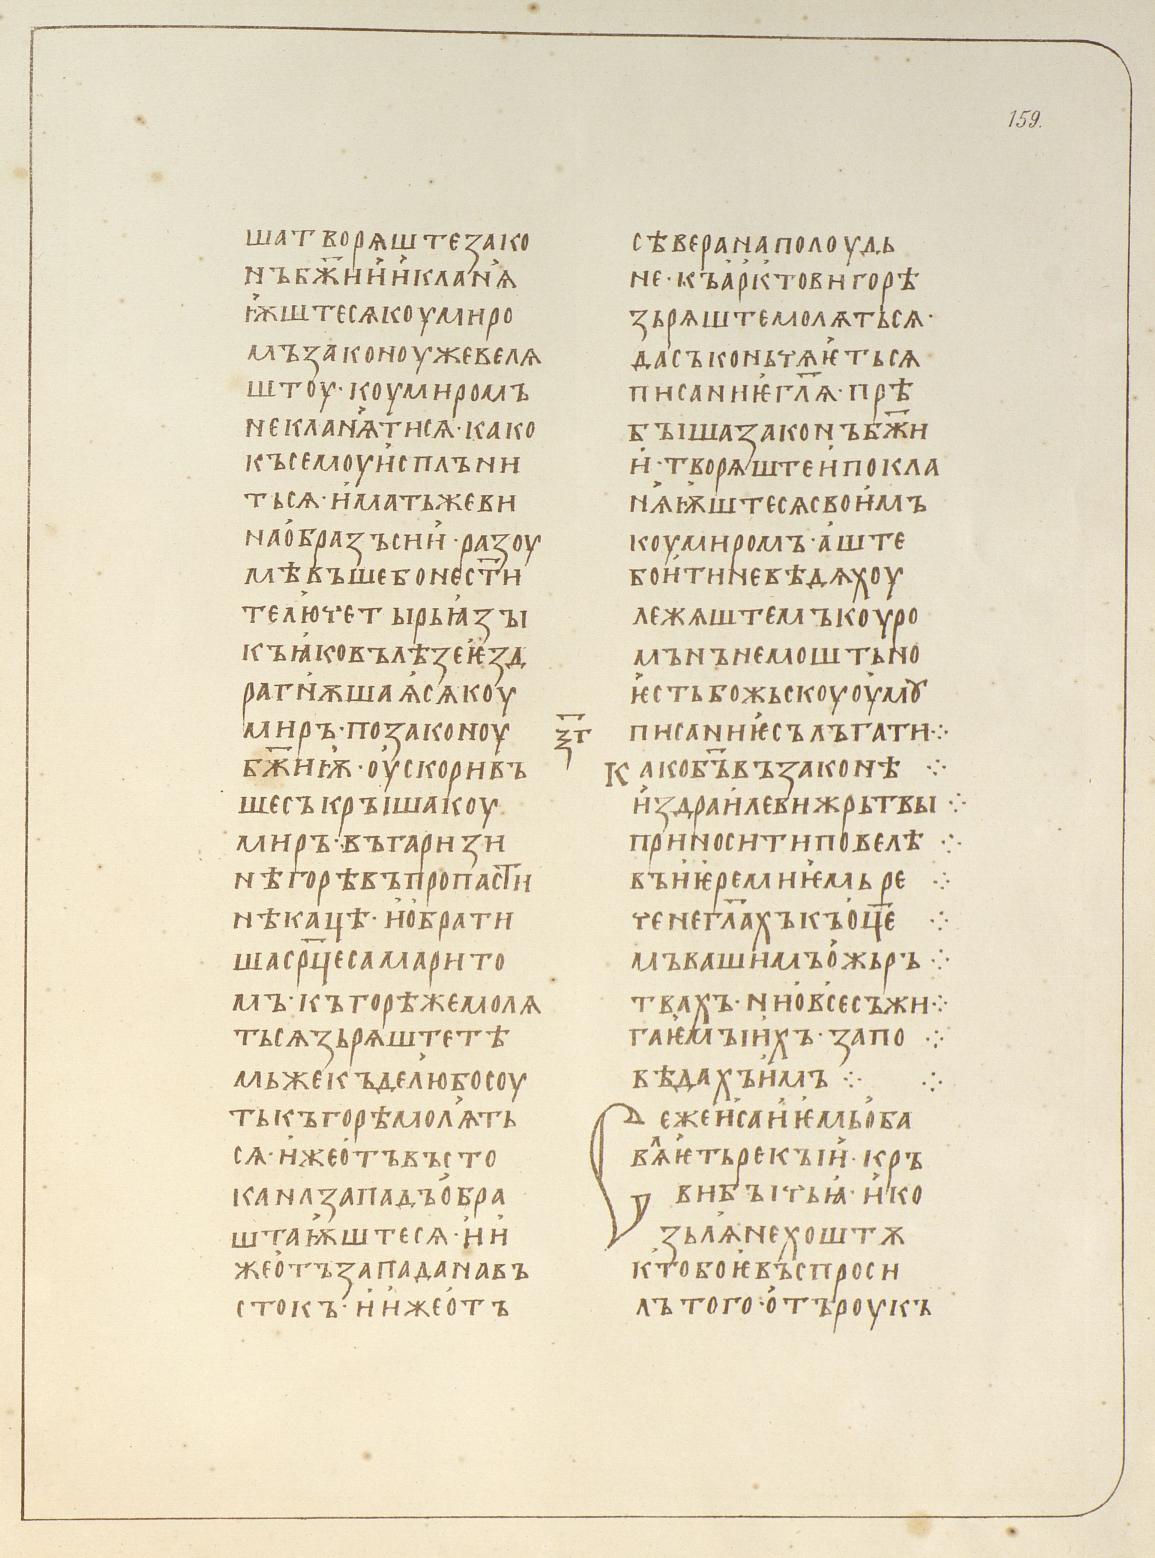 159.
шатворѧштезако
нъбж҃ниикланѧ
ѭштесѧкоумиро
мъзаконоужевелѧ
штоу·коумиромъ
некланѧтисѧ·како
къ семоуисплъни
тьсѧ·иматьжеви
наобразъсии·разоу
мѣвъшебонест҃и
телючетырьꙗзы
къꙗковълѣзеѥзд
рагнѫшаѧсѧкоу
миръ·позаконоу
бж҃ниѭ·оускоривъ
шесъкрꙑшакоу
миръ·въгаризи
нѣгорѣвъпропаст҃и
нѣкацѣ·иобрати
шасрц҃есамарито
мъ·къгорѣжемолѧ
тьсѧзьрѧштетѣ
мьжекъделюбосоу
тькъгорѣмолѧть
сѧ·ижеотъвъсто
каназападъобра
штаѭштесѧ·ии
жеотъзападанавъ
стокъ·иижеотъ
сѣверанаполоудь
не·къарктовигорѣ
зьрѧштемолѧтьсѧ·
дасъконьчѧѥтьсѧ
писаниѥгл҃ѧ·прѣ
бꙑшазаконъбж҃и
и·творѧштеипокла
нѧѭштесѧсвоимъ
коумиромъ·аште
боитиневѣдѧхоу
лежѧштемъкоуро
мънънемоштьно
ѥстьбожьскоуоумꙋ
писаниѥсълъгати⁘
ѯг҃
какобъ҃възаконѣ ⁘
издраилевижрьтвы ⁘
приноситиповелѣ ⁘
въиѥремиѥмьре ⁘
ченегл҃ахъкъоц҃е ⁘
мъвашимъожьр꙽ъ ⁘
твахъ·ниовсесъжи⁘
гаѥмꙑихъ·запо ⁘
вѣдахъимъ ⁘ ⁘
Сежеисаиѥмьоба
влѧѥтьрекꙑи·кръ
вибꙑчьꙗ·ико
зьлѧнехоштѫ
у
ктобоѥвъспроси
лътого·отъроукъ